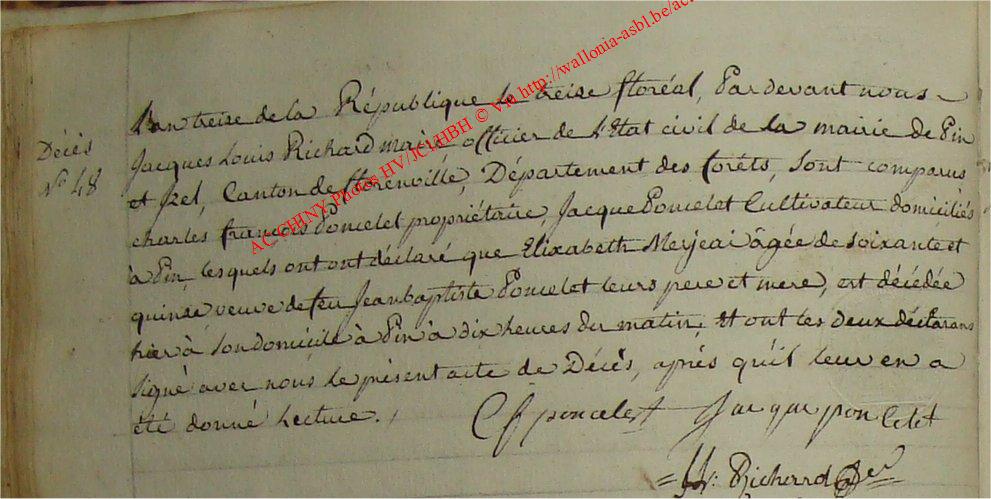 Décès
N.° 48
L'an treize de la République le treize floréal, Pardevant nous
Jacques Louis Richard maire officier de l'Etat civil de la mairie de Pin
et Izel, Canton de florenville, Département des forêts, sont comparus
charles françois Poncelet propriétaire, Jacque Poncelet Cultivateur domiciliés
à Pin, lesquels ont ont déclaré que Elizabeth Merjeai âgée de soixante et
quinze veuve de feu Jean baptiste Poncelet leurs pere et mere, est décédée
hier à son domicile à Pin à dix heures du matin, Et ont les deux déclarans
signé avec nous le présent acte de Décès, après qu'il leur en a
été donné Lecture.
C f poncelet Jacque poncelet
J L: Richard
AC CHINY Photos HV/JCl/HBH © Via http://wallonia-asbl.be/ac